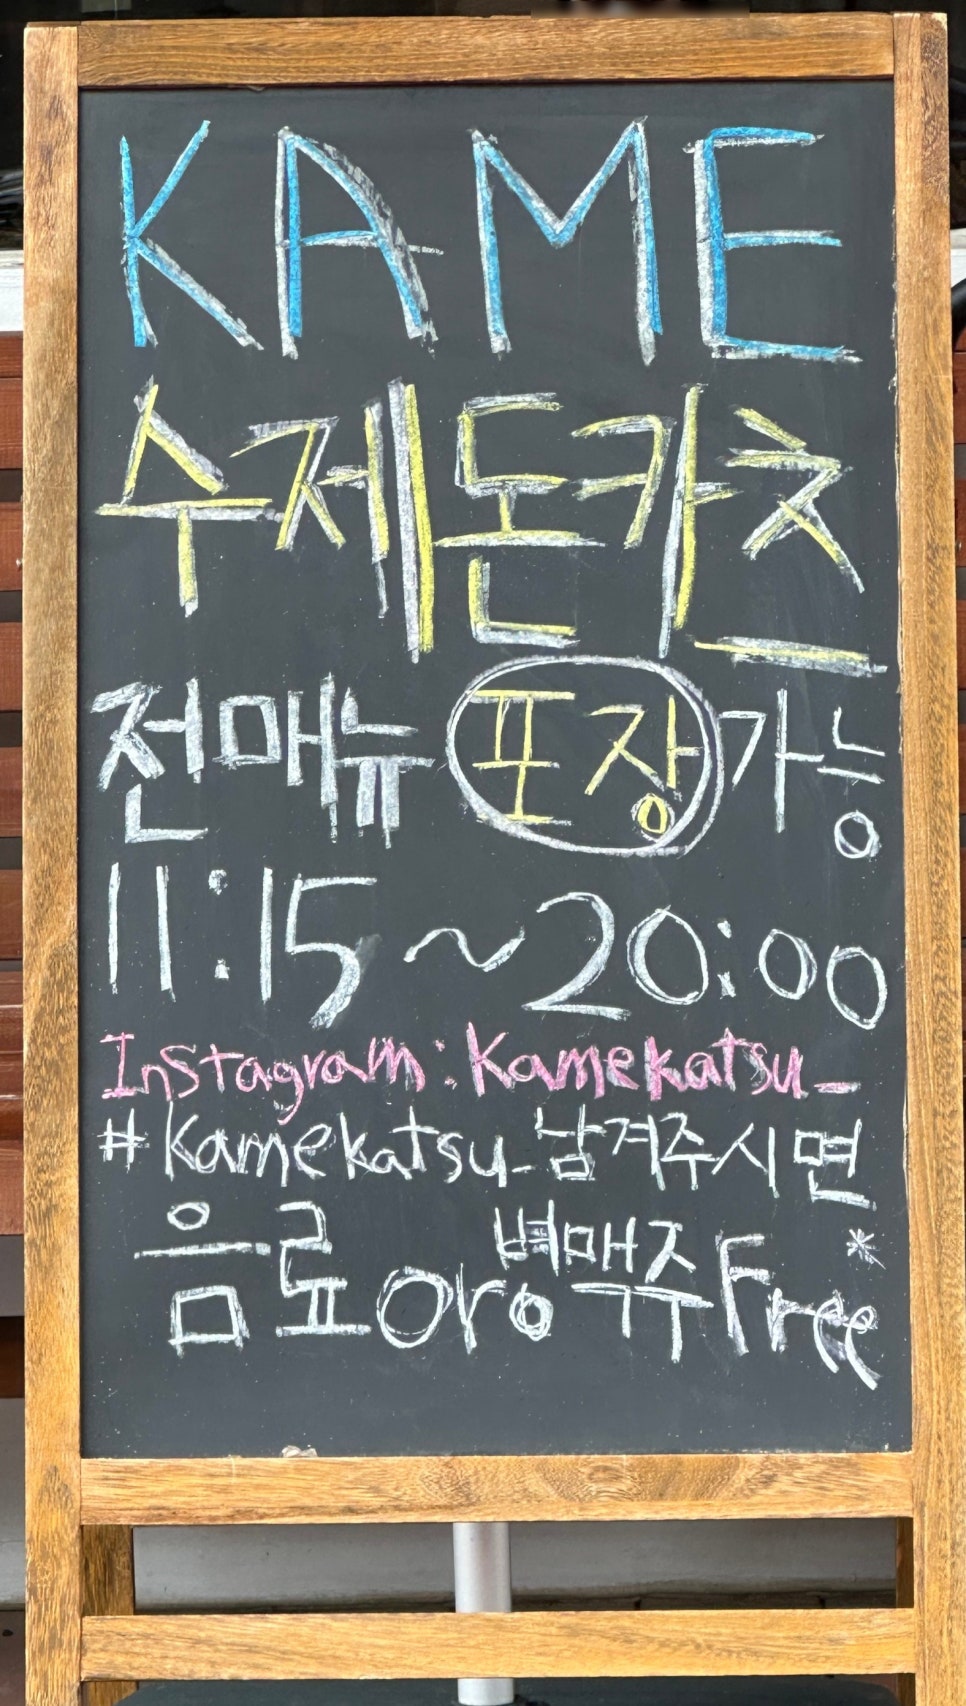 KAME
수제돈카츠
전메뉴 포장가능
11:15~20:00
Instagram: Kamekatsu_
#Kamekatsu_남겨주시면
음료or병맥주Free*